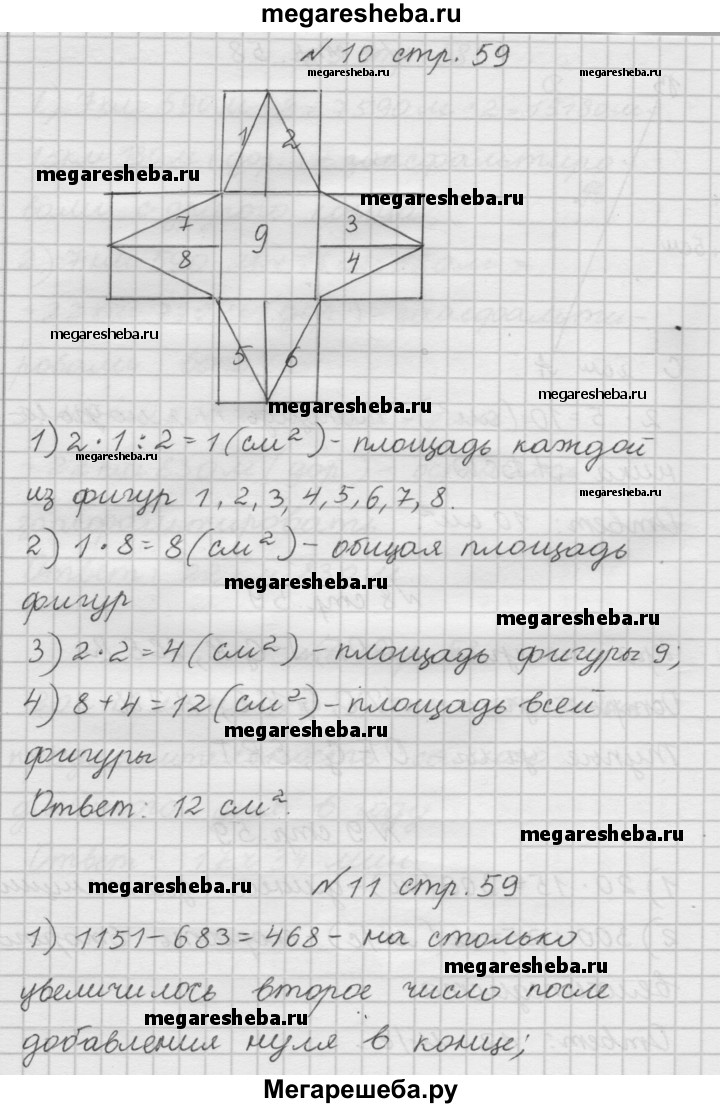 megaresheba.ru
№ 10 стр. 59
megaresheba.ru megaresheba.ru
1 2
megaresheba.ru
megaresheba.ru
7 3
9
8 4
megaresheba.ru
5 6
megaresheba.ru
megaresheba.ru
1) 2 · 1 : 2 = 1 (см²) - площадь каждой
megaresheba.ru
из фигур 1, 2, 3, 4, 5, 6, 7, 8.
megaresheba.ru
2) 1 · 8 = 8 (см²) - общая площадь
megaresheba.ru
фигур
megaresheba.ru
3) 2 · 2 = 4 (см²) - площадь фигуры 9;
4) 8 + 4 = 12 (см²) - площадь всей
megaresheba.ru
фигуры
Ответ: 12 см².
megaresheba.ru
megaresheba.ru
№ 11 стр. 59
1) 1151 - 683 = 468 - на столько
megaresheba.ru
увеличилось второе число после
megaresheba.ru
добавления нуля в конце;
Мегарешеба.ру